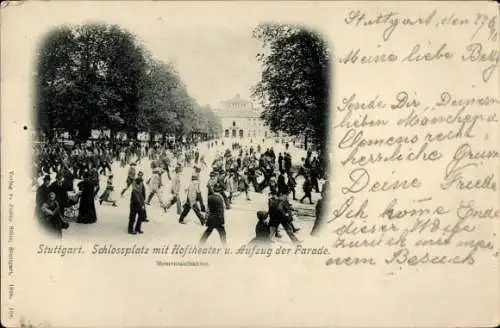 Stuttgart, den 29/6
Meine liebe Betty
Sende Dir, Deinem
lieben Mann u.
Clemens recht
herzliche Grüsse
Deine Frieda
Ich komme Ende
dieser Woche
zurück
Besuch
Stuttgart. Schlossplatz mit Hoftheater u. Aufzug der Parade.
Verlag v. Stuttgart. 1898.